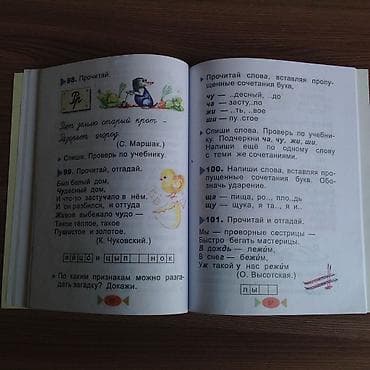 98. Прочитай.
Рр
Роет землю старый крот –
Разроет огород.
(С. Маршак.)
Спиши. Проверь по учебнику.
99. Прочитай, отгадай.
Был белый дом,
Чудесный дом,
И что-то застучало в нём.
И он разбился, и оттуда
Живое выбежало чудо —
Такое тёплое, такое
Пушистое и золотое.
(К. Чуковский.)
яйцо и цып нок
По каким признакам можно разгадать
загадку? Докажи.
Прочитай слова, вставляя пропущенные
сочетания букв.
чу — ..десный, ..до
ча — засту..ло
жи — ..ть, ..вое
ши — пу..стое
Спиши слова. Проверь по учебнику.
Подчеркни ча, чу, жи, ши.
Напиши ещё по одному слову
с теми же сочетаниями.
100. Напиши слова, вставляя пропущенные
сочетания букв. Обозначь
ударение.
ща — пища, ро.., пло..дь
щу — щука, я та.., я и..
101. Прочитай и отгадай.
Мы — проворные сестрицы —
Быстро бегать мастерицы.
В дождь — лежим,
В снег — бежим,
Уж такой у нас режим
(О. Высотская.)
лы